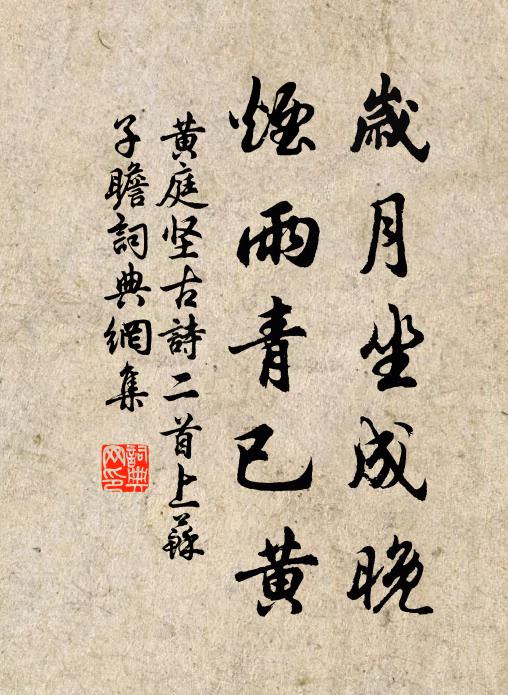 歳月坐成晚
煙雨青已黄
黄庭坚古詩二首上蘇
子瞻詞典網集
詞典网印